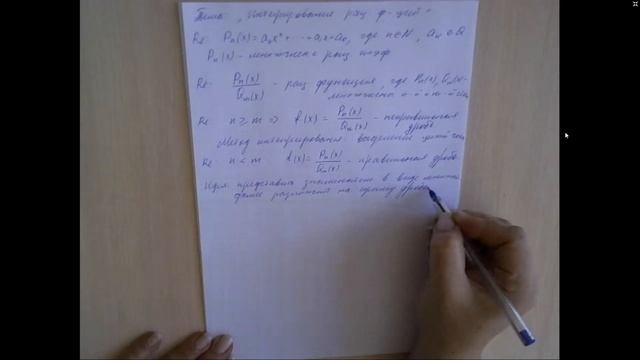 Тема: „Интегрирование рац. ф-ций"
Pₙ(x) = aₙxⁿ + ⋯ + a₁x + a₀, где n ∈ N, aₙ ∈ Q
Pₙ(x) – многочлен с рац. коэф
Pₙ(x)/Qₘ(x) – рац. функция, где Pₙ(x), Qₘ(x) –
многочлены n-й и m-й
n ≥ m ⇒ f(x) = Pₙ(x)/Qₘ(x) – неправильная
дробь
Метод интегрирования: выделение целой части
n < m f(x) = Pₙ(x)/Qₘ(x) – правильная дробь
Идея: представить знаменатель в виде
разложить на сумму дробей